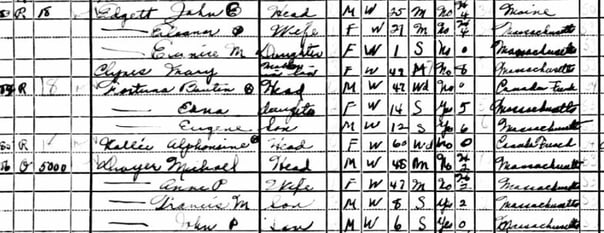 R 18 Edgett John Head M W 25 M No Maine
Eleanor P Wife F W 21 M No Massachusetts
Eunice M Daughter F W 1 S No 0 Massachusetts
Mary F W 42 M No 8 Massachusetts
R 18 Fortuna Head M W 47 Wd No 0 Canada
Edna Daughter F W 14 S Yes 5 Massachusetts
Eugene Son M W 12 S Yes 6 Massachusetts
R Alphonsine Head F W 60 Wd No 0 French
O 5000 Dwyer Michael Head M W 48 M No Massachusetts
Anne P Wife F W 47 M No Massachusetts
Francis M Son M W 8 S Yes 2 Massachusetts
John P Son M W 6 S Yes 0 Massachusetts